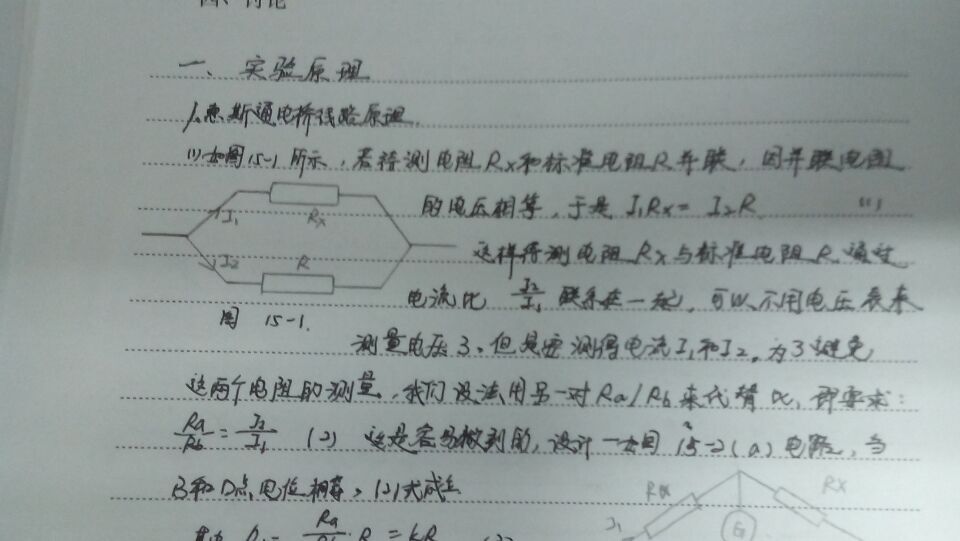 四、讨论
一、实验原理
1.惠斯通电桥线路原理.
(1)如图15-1所示,若待测电阻Rx和标准电阻R并联,因并联电阻
的电压相等,于是 I₁Rx = I₂R (1)
I₁ Rx
这样待测电阻Rx与标准电阻R通过
I₂ R
电流比 I₂/I₁ 联系在一起,可以不用电压表来
图 15-1.
测量电压了,但是要测得电流I₁和I₂,为了避免
这两个电阻的测量,我们设法用另一对Ra/Rb来代替比,即要求:
Ra/Rb = I₂/I₁ (2) 这是容易做到的,设计一如图15-2(a)电路,当
B和D点电位相等,(2)式成立
Ra Rx
Ra R = kR
I₁ G